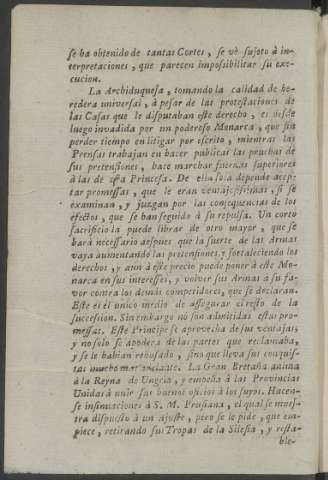 se ha obtenido de tantas Cortes, se vè sujeto à in-
terpretaciones, que parecen impossibilitar su exe-
cucion.
La Archiduquesa, tomando la calidad de he-
redera universal, à pesar de las protestaciones de
las Casas que le disputaban este derecho, es desde
luego invadida por un poderoso Monarca, que sin
perder tiempo en litigar por escrito, mientras las
Prensas trabajan en hacer publicas las pruebas de
sus pretensiones, hace marchar fuerzas superiores
à las de esta Princesa. De ella sola depende acep-
tar promessas, que le eran ventajosissimas, si se
examinan, y juzgan por las consequencias de los
efectos, que se han seguido à su repulsa. Un corto
sacrificio la puede librar de otro mayor, que se
harà necessario despues que la suerte de las Armas
vaya aumentando las pretensiones, y fortaleciendo los
derechos, y aun à este precio puede poner à este Mo-
narca en sus interesses, y volver sus Armas à su fa-
vor contra los demàs competidores, que se declaran.
Este es el unico medio de assegurar el resto de la
succession. Sin embargo no son admitidas estas pro-
messas. Este Principe se aprovecha de sus ventajas,
y no solo se apodera de las partes que reclamaba,
y se le habian rehusado, sino que lleva sus conquis-
tas mucho mas adelante. La Gran Bretaña anima
à la Reyna de Ungria, y empeña à las Provincias
Unidas à unir sus buenos oficios à los suyos. Hacen-
se insinuaciones à S. M. Prusiana, el qual se mues-
tra dispuesto à un ajuste, pero se le pide, que em-
piece, retirando sus Tropas de la Silesia, y resta-
ble-